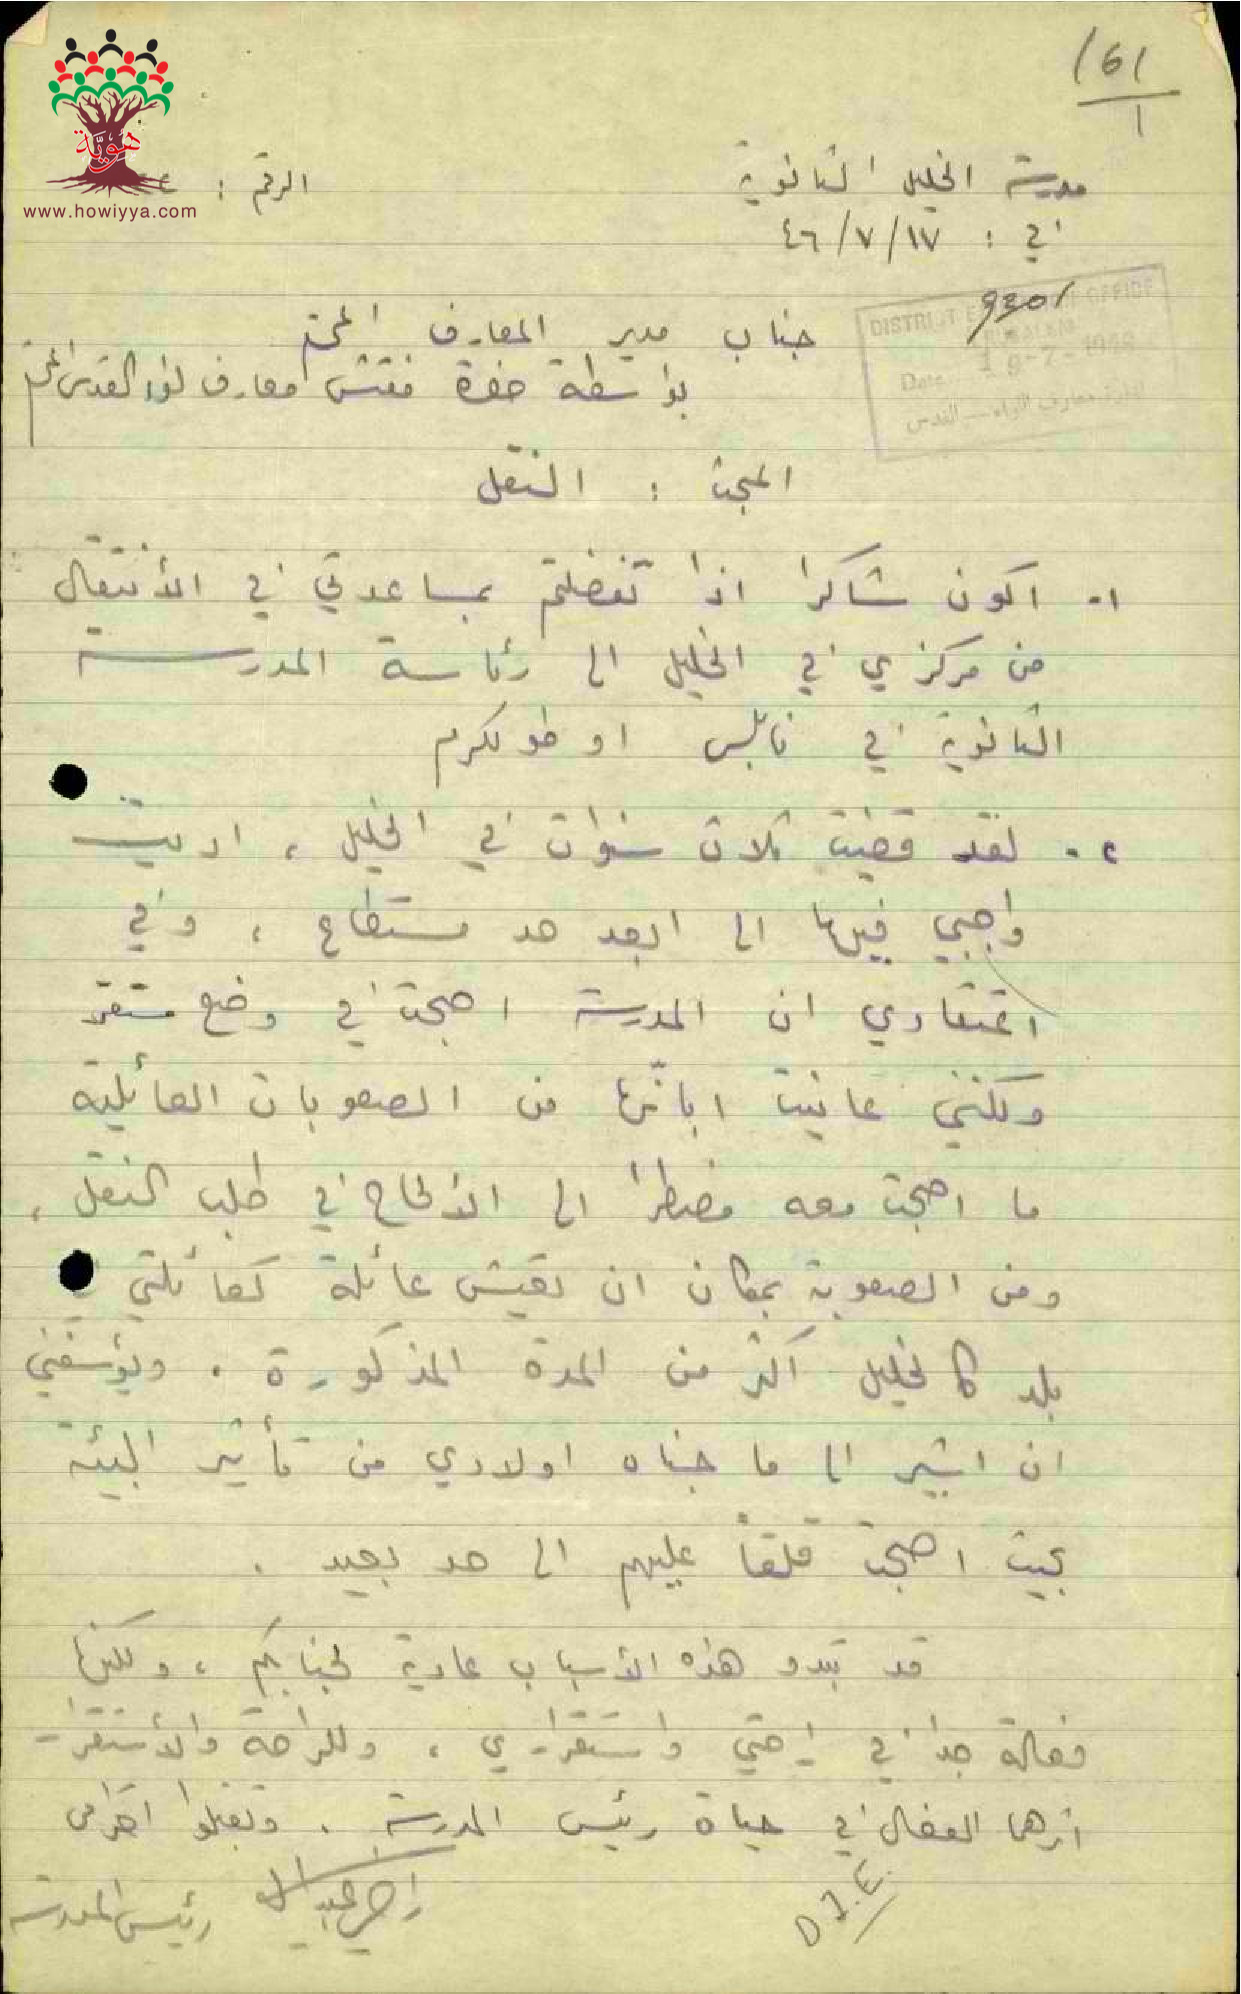 161
1
هوية
www.howiyya.com
مدرسة الخليل الثانوية
الرقم :
في : ١٧/٧/٤٦
DISTRICT EDUCATION OFFICE
JERUSALEM
Date
ادارة معارف اللواء — القدس
جناب مدير المعارف المحترم
بواسطة حضرة مفتش معارف لواء القدس المحترم
المبحث : النقل
١- اكون شاكرا اذا تفضلتم بمساعدتي في الأنتقال
من مركزي في الخليل الى رئاسة المدرسة
الثانوية في نابلس او طولكرم
٢- لقد قضيت ثلاث سنوات في الخليل ، اديت
واجبي فيها الى ابعد حد مستطاع ، وفي
اعتقادي ان المدرسة اصبحت في وضع مستقر
ولكنني عانيت ابانها من الصعوبات العائلية
ما اصبحت معه مضطرا الى الألحاح في طلب النقل ،
ومن الصعوبة بمكان ان تعيش عائلة كعائلتي في
بلد كالخليل اكثر من المدة المذكورة . ويؤسفني
ان اشير الى ما جناه اولادي من تأثير البيئة
بحيث اصبحت قلقاً عليهم الى حد بعيد .
قد تبدو هذه الأسباب عادية لجنابكم ، ولكنها
فعالة جدا في راحتي واستقراري ، وللراحة والأستقرار
اثرهما الفعال في حياة رئيس المدرسة . وتفضلوا احترامي
رئيس المدرسة
D.I.E.